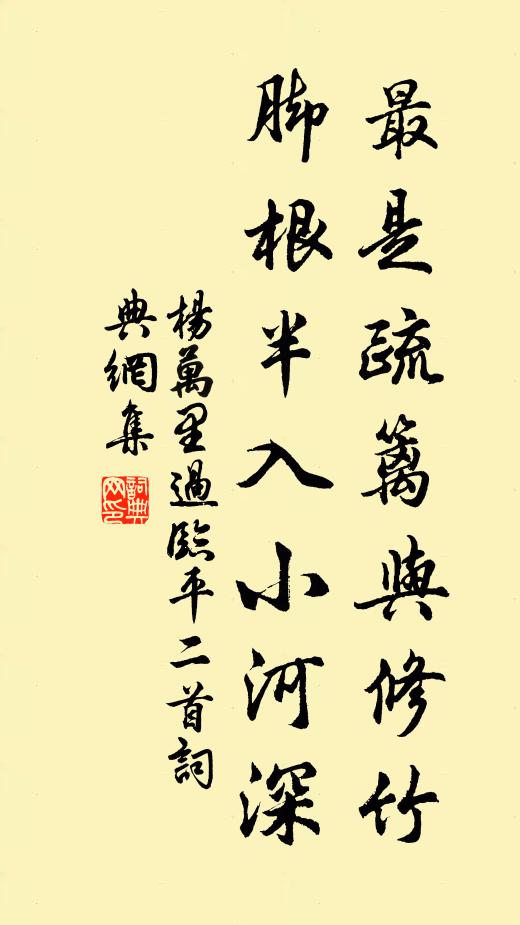 最是疏篱與修竹
脚根半入小河深
楊萬里過臨平二首詞
典網集
詞典网印